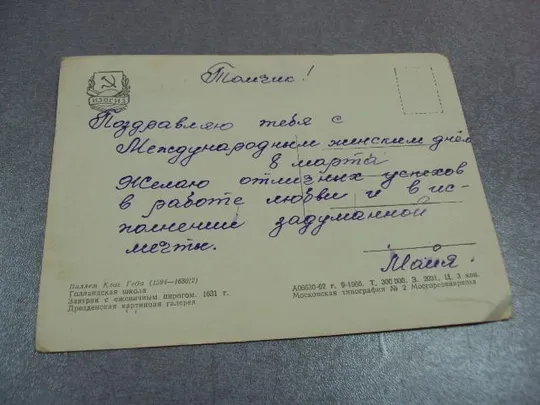 Томчик!
ИЗОГИЗ
Поздравляю тебя с
Международным женским днём
8 марта
Желаю отличных успехов
в работе любви и в ис-
полнении задуманной
мечты.
Майя.
Виллем Клаас Геда (1594—1680/2)
Голландская школа
Завтрак с ежевичным пирогом. 1631 г.
Дрезденская картинная галерея
А06630-62 г. 9-1966. Т. 300 000. З. 2031. Ц. 3 коп.
Московская типография № 2 Мосгорсовнархоза